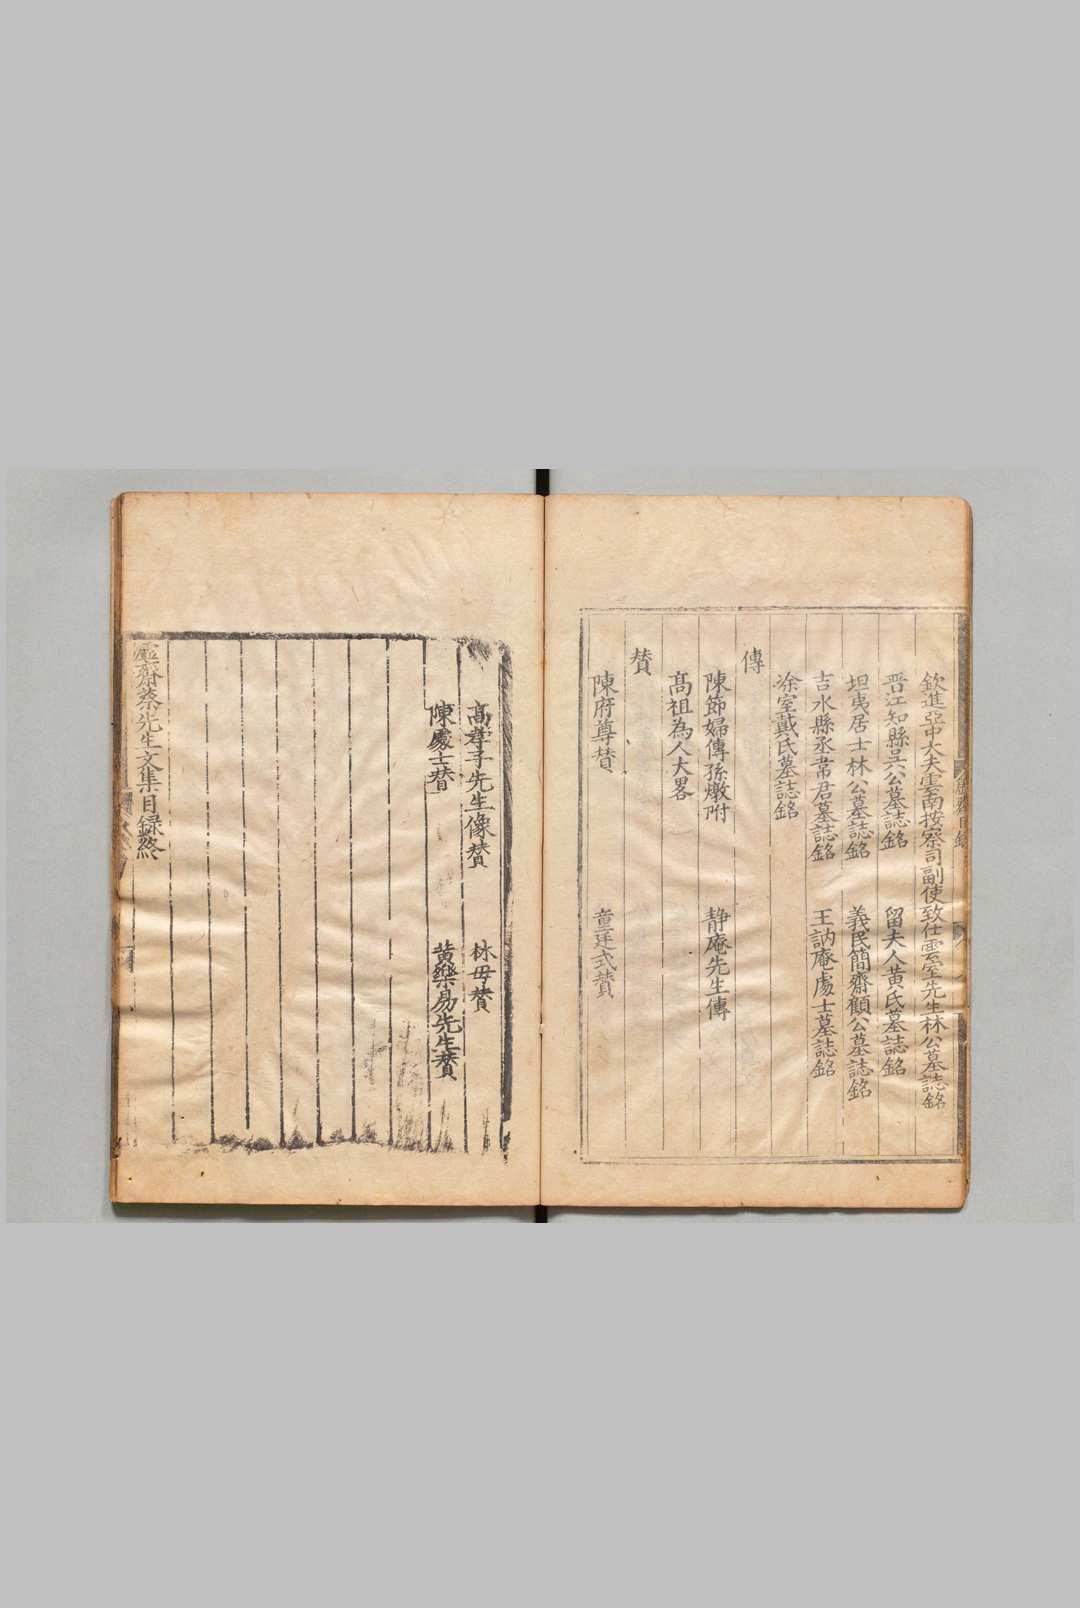 欽進亞中大夫雲南按察司副使致仕雲室先生林公墓誌銘
晋江知縣吳公墓誌銘　留夫人黄氏墓誌銘
坦夷居士林公墓誌銘　義民簡齋顧公墓誌銘
吉水縣丞常君墓誌銘　王訥庵處士墓誌銘
凃室戴氏墓誌銘
傳
陳節婦傳孫燉附　静庵先生傳
髙祖為人大畧
賛
陳府尊賛　童廷式賛
髙孝子先生像賛　林母賛
陳處士賛　黄樂易先生賛
虚齋蔡先生文集目録終